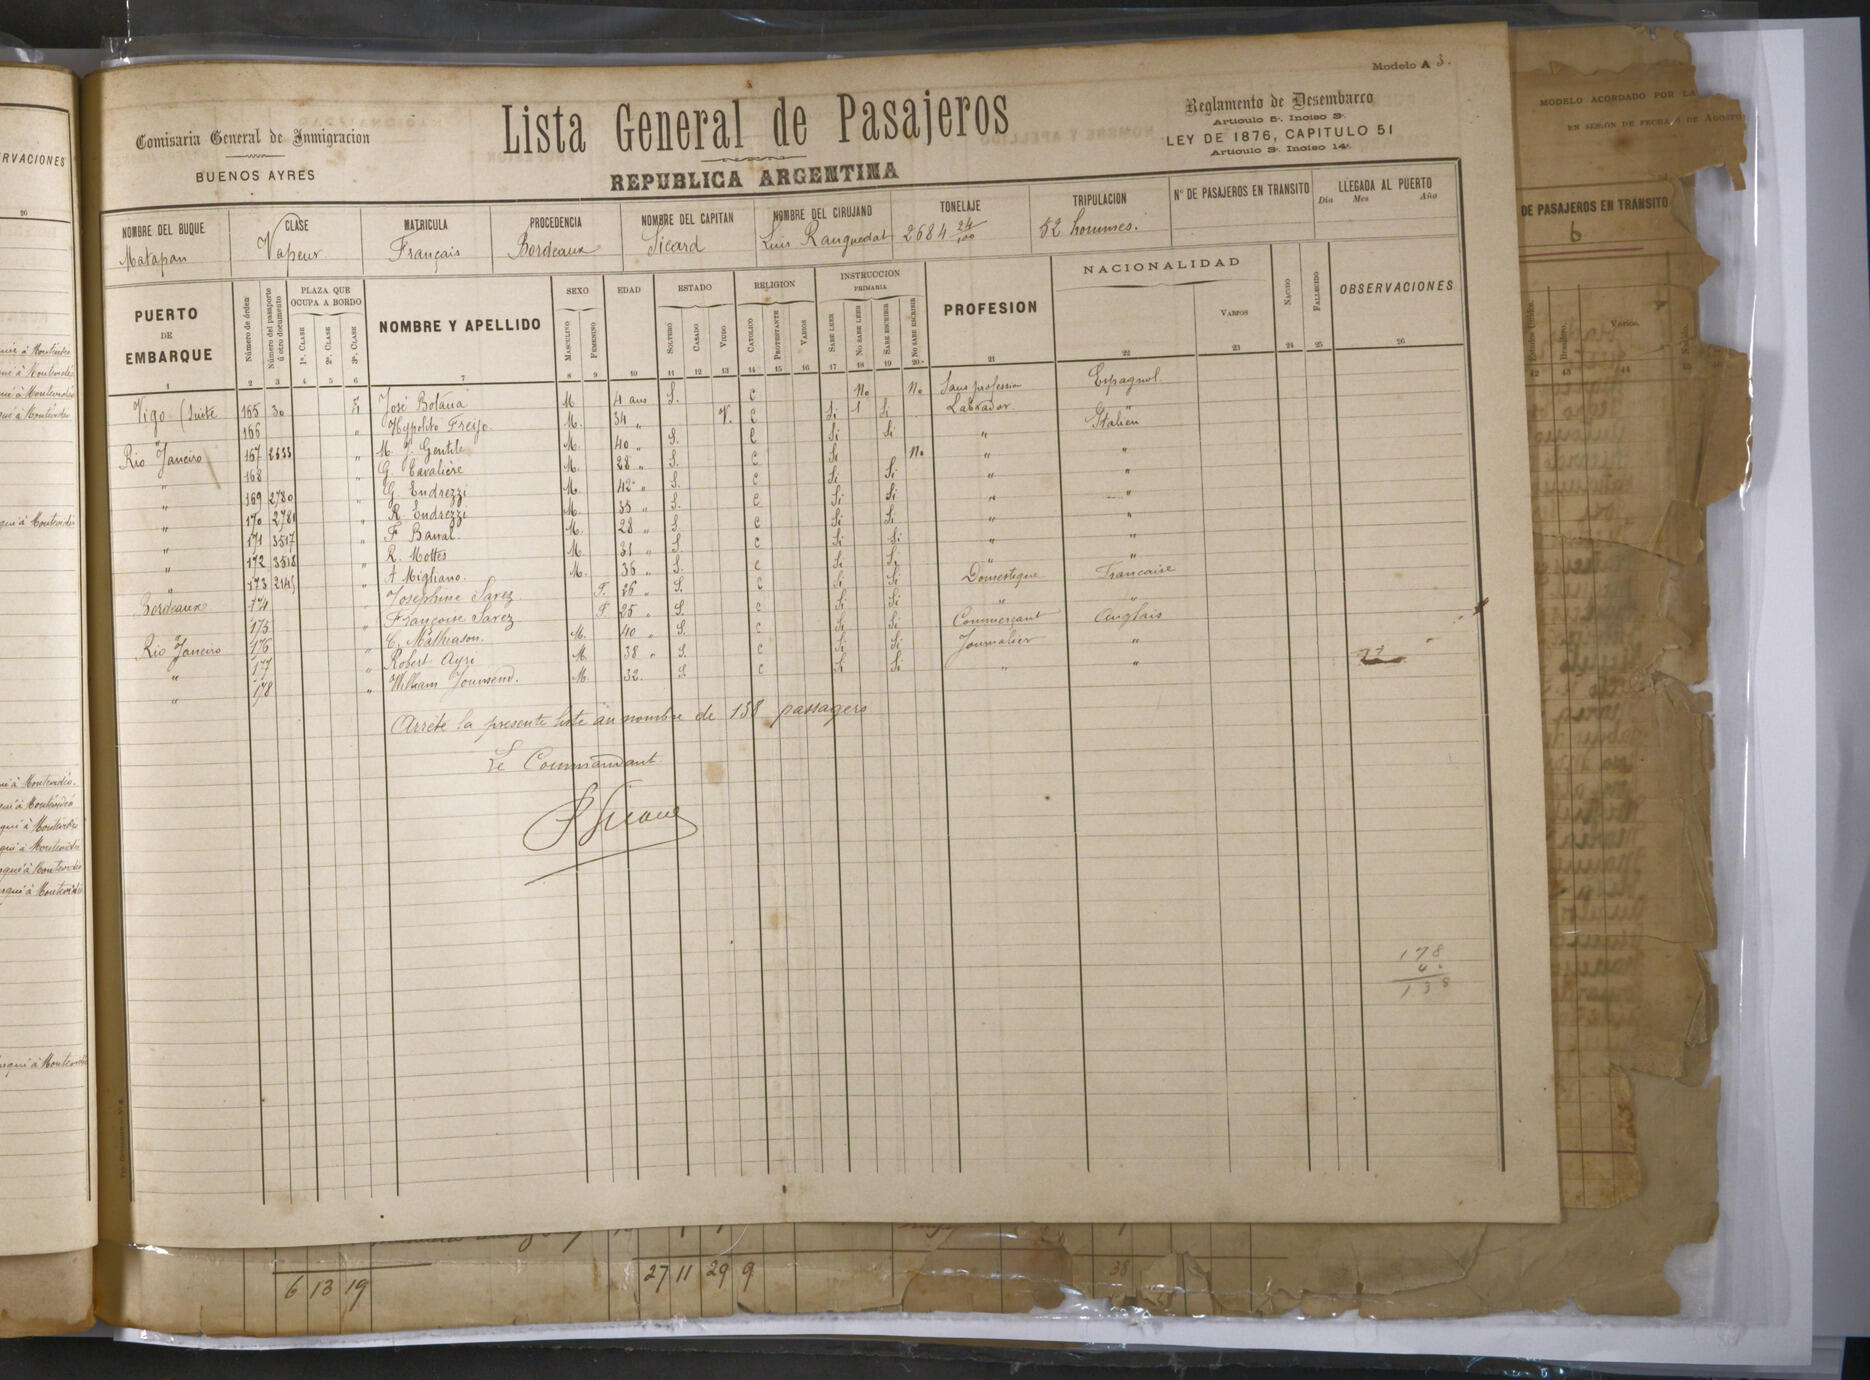 Modelo A 3.
Comisaria General de Inmigracion
BUENOS AYRES
Lista General de Pasajeros
REPUBLICA ARGENTINA
Reglamento de Desembarco
Articulo 5º. Inciso 3º.
LEY DE 1876, CAPITULO 51
Articulo 3º. Inciso 14º.
NOMBRE DEL BUQUE CLASE MATRICULA PROCEDENCIA NOMBRE DEL CAPITAN NOMBRE DEL CIRUJANO TONELAJE TRIPULACION Nº DE PASAJEROS EN TRANSITO LLEGADA AL PUERTO
Dia Mes Año
Matapan Vapeur Français Bordeaux Sicard Luis Ranguedat 2684 24/100 52 hommes.
PUERTO DE EMBARQUE Número de órden Número del pasaporte ú otro documento PLAZA QUE OCUPA A BORDO 1ª. CLASE 2ª. CLASE 3ª. CLASE NOMBRE Y APELLIDO SEXO MASCULINO FEMENINO EDAD ESTADO SOLTERO CASADO VIUDO RELIGION CATOLICO PROTESTANTE VARIOS INSTRUCCION PRIMARIA SABE LEER NO SABE LEER SABE ESCRIBIR NO SABE ESCRIBIR PROFESION NACIONALIDAD VARIOS NACIDO FALLECIDO OBSERVACIONES
1 2 3 4 5 6 7 8 9 10 11 12 13 14 15 16 17 18 19 20 21 22 23 24 25 26
Vigo (suite 165 30 José Botana M 4 ans S. C No No Sans profession Espagnol
" 166 " Hypolito Freijo. M. 34 " V. C Si 1 Si Labrador "
Rio Janeiro 167 2633 " M. J. Gentile M. 40 " S. C Si Si " Italien
" 168 " G. Cavalière M. 28 " S. C Si No " "
" 169 2780 " G. Endrezzi M. 42 " S. C Si Si " "
" 170 2781 " R. Endrezzi M. 33 " S. C Si Si " "
" 171 3517 " F. Banal. M. 28 " S. C Si Si " "
" 172 3518 " R. Mottes M. 31 " S. C Si Si " "
" 173 2145 " A Migliano. M. 36 " S. C Si Si " "
Bordeaux 174 " Joséphine Sarez F. 26 " S. C Si Si Domestique Française
175 " Françoise Sarez F 25 " S. C Si Si " "
Rio Janeiro 176 " C. Mathiason. M. 40 " S. C Si Si Commerçant Anglais
" 177 " Robert Ayri M 38 " S. C Si Si Journalier "
" 178 " William Townsend. M. 32. S C Si Si " "
Arrêté la presente liste au nombre de 138 passagers
Le Commandant
Sicard
178
40
138
MODELO ACORDADO POR LA
EN SESION DE FECHA 8 DE AGOSTO
DE PASAJEROS EN TRANSITO
6
Estados Unidos. Brasilero. Varios.
42 43 44 45
RVACIONES
26
6 13 19 27 11 29 9 38